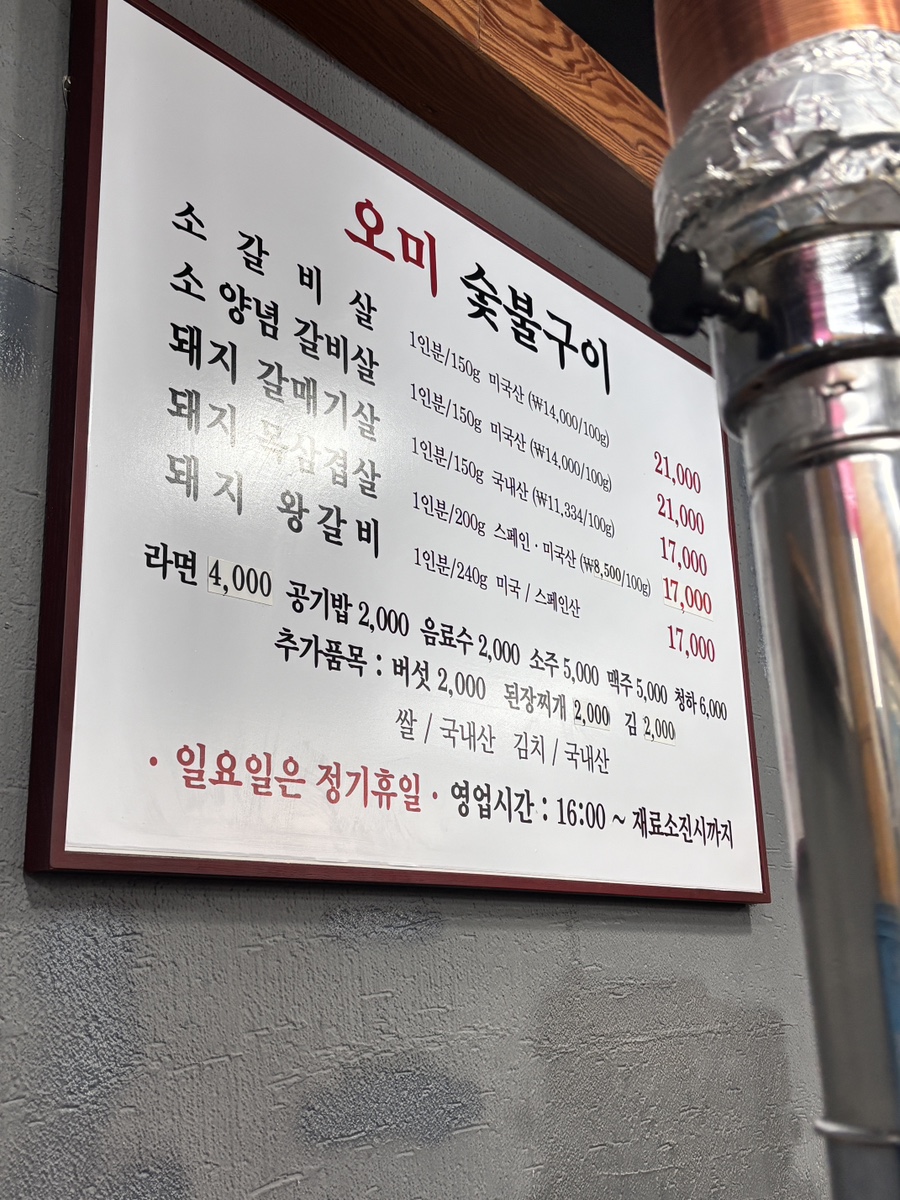 오미 숯불구이
소 갈 비 살 1인분/150g 미국산 (₩14,000/100g) 21,000
소 양념 갈비살 1인분/150g 미국산 (₩14,000/100g) 21,000
돼지 갈매기살 1인분/150g 국내산 (₩11,334/100g) 17,000
돼지 목삼겹살 1인분/200g 스페인 · 미국산 (₩8,500/100g) 17,000
돼 지 왕 갈 비 1인분/240g 미국 / 스페인산 17,000
라면 4,000 공기밥 2,000 음료수 2,000 소주 5,000 맥주 5,000 청하 6,000
추가품목 : 버섯 2,000 된장찌개 2,000 김 2,000
쌀 / 국내산 김치 / 국내산
· 일요일은 정기휴일 · 영업시간 : 16:00 ~ 재료소진시까지